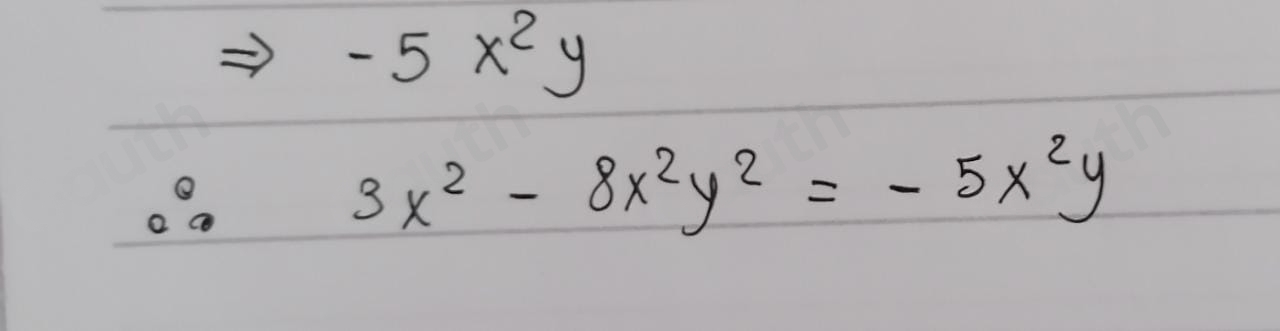 ⇒ -5 x²y
∴ 3x² - 8x²y² = - 5x²y